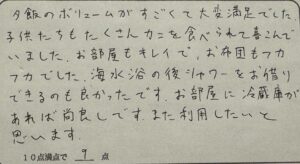 夕飯のボリュームがすごくて大変満足でした。
子供たちもたくさんカニを食べられて喜んで
いました。お部屋もキレイで、お布団もフカ
フカでした。海水浴の後シャワーをお借り
できるのも良かったです。お部屋に冷蔵庫が
あれば尚良しです。また利用したいと
思います。
10点満点で 9 点